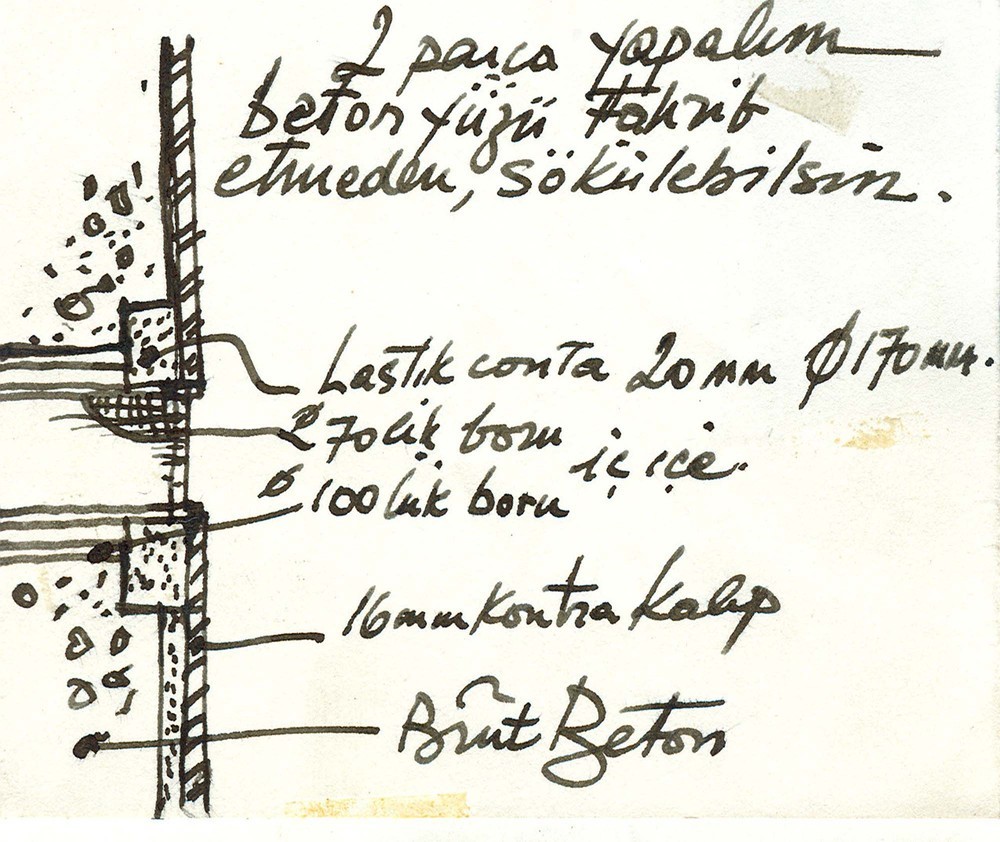 2 parça yapalım
beton yüzü tahrib
etmeden, sökülebilsin.
Lastik conta 20 mm Ø170mm.
Ø 70lik boru
iç içe.
Ø 100lük boru
16mm Kontra Kalıp
Brüt Beton